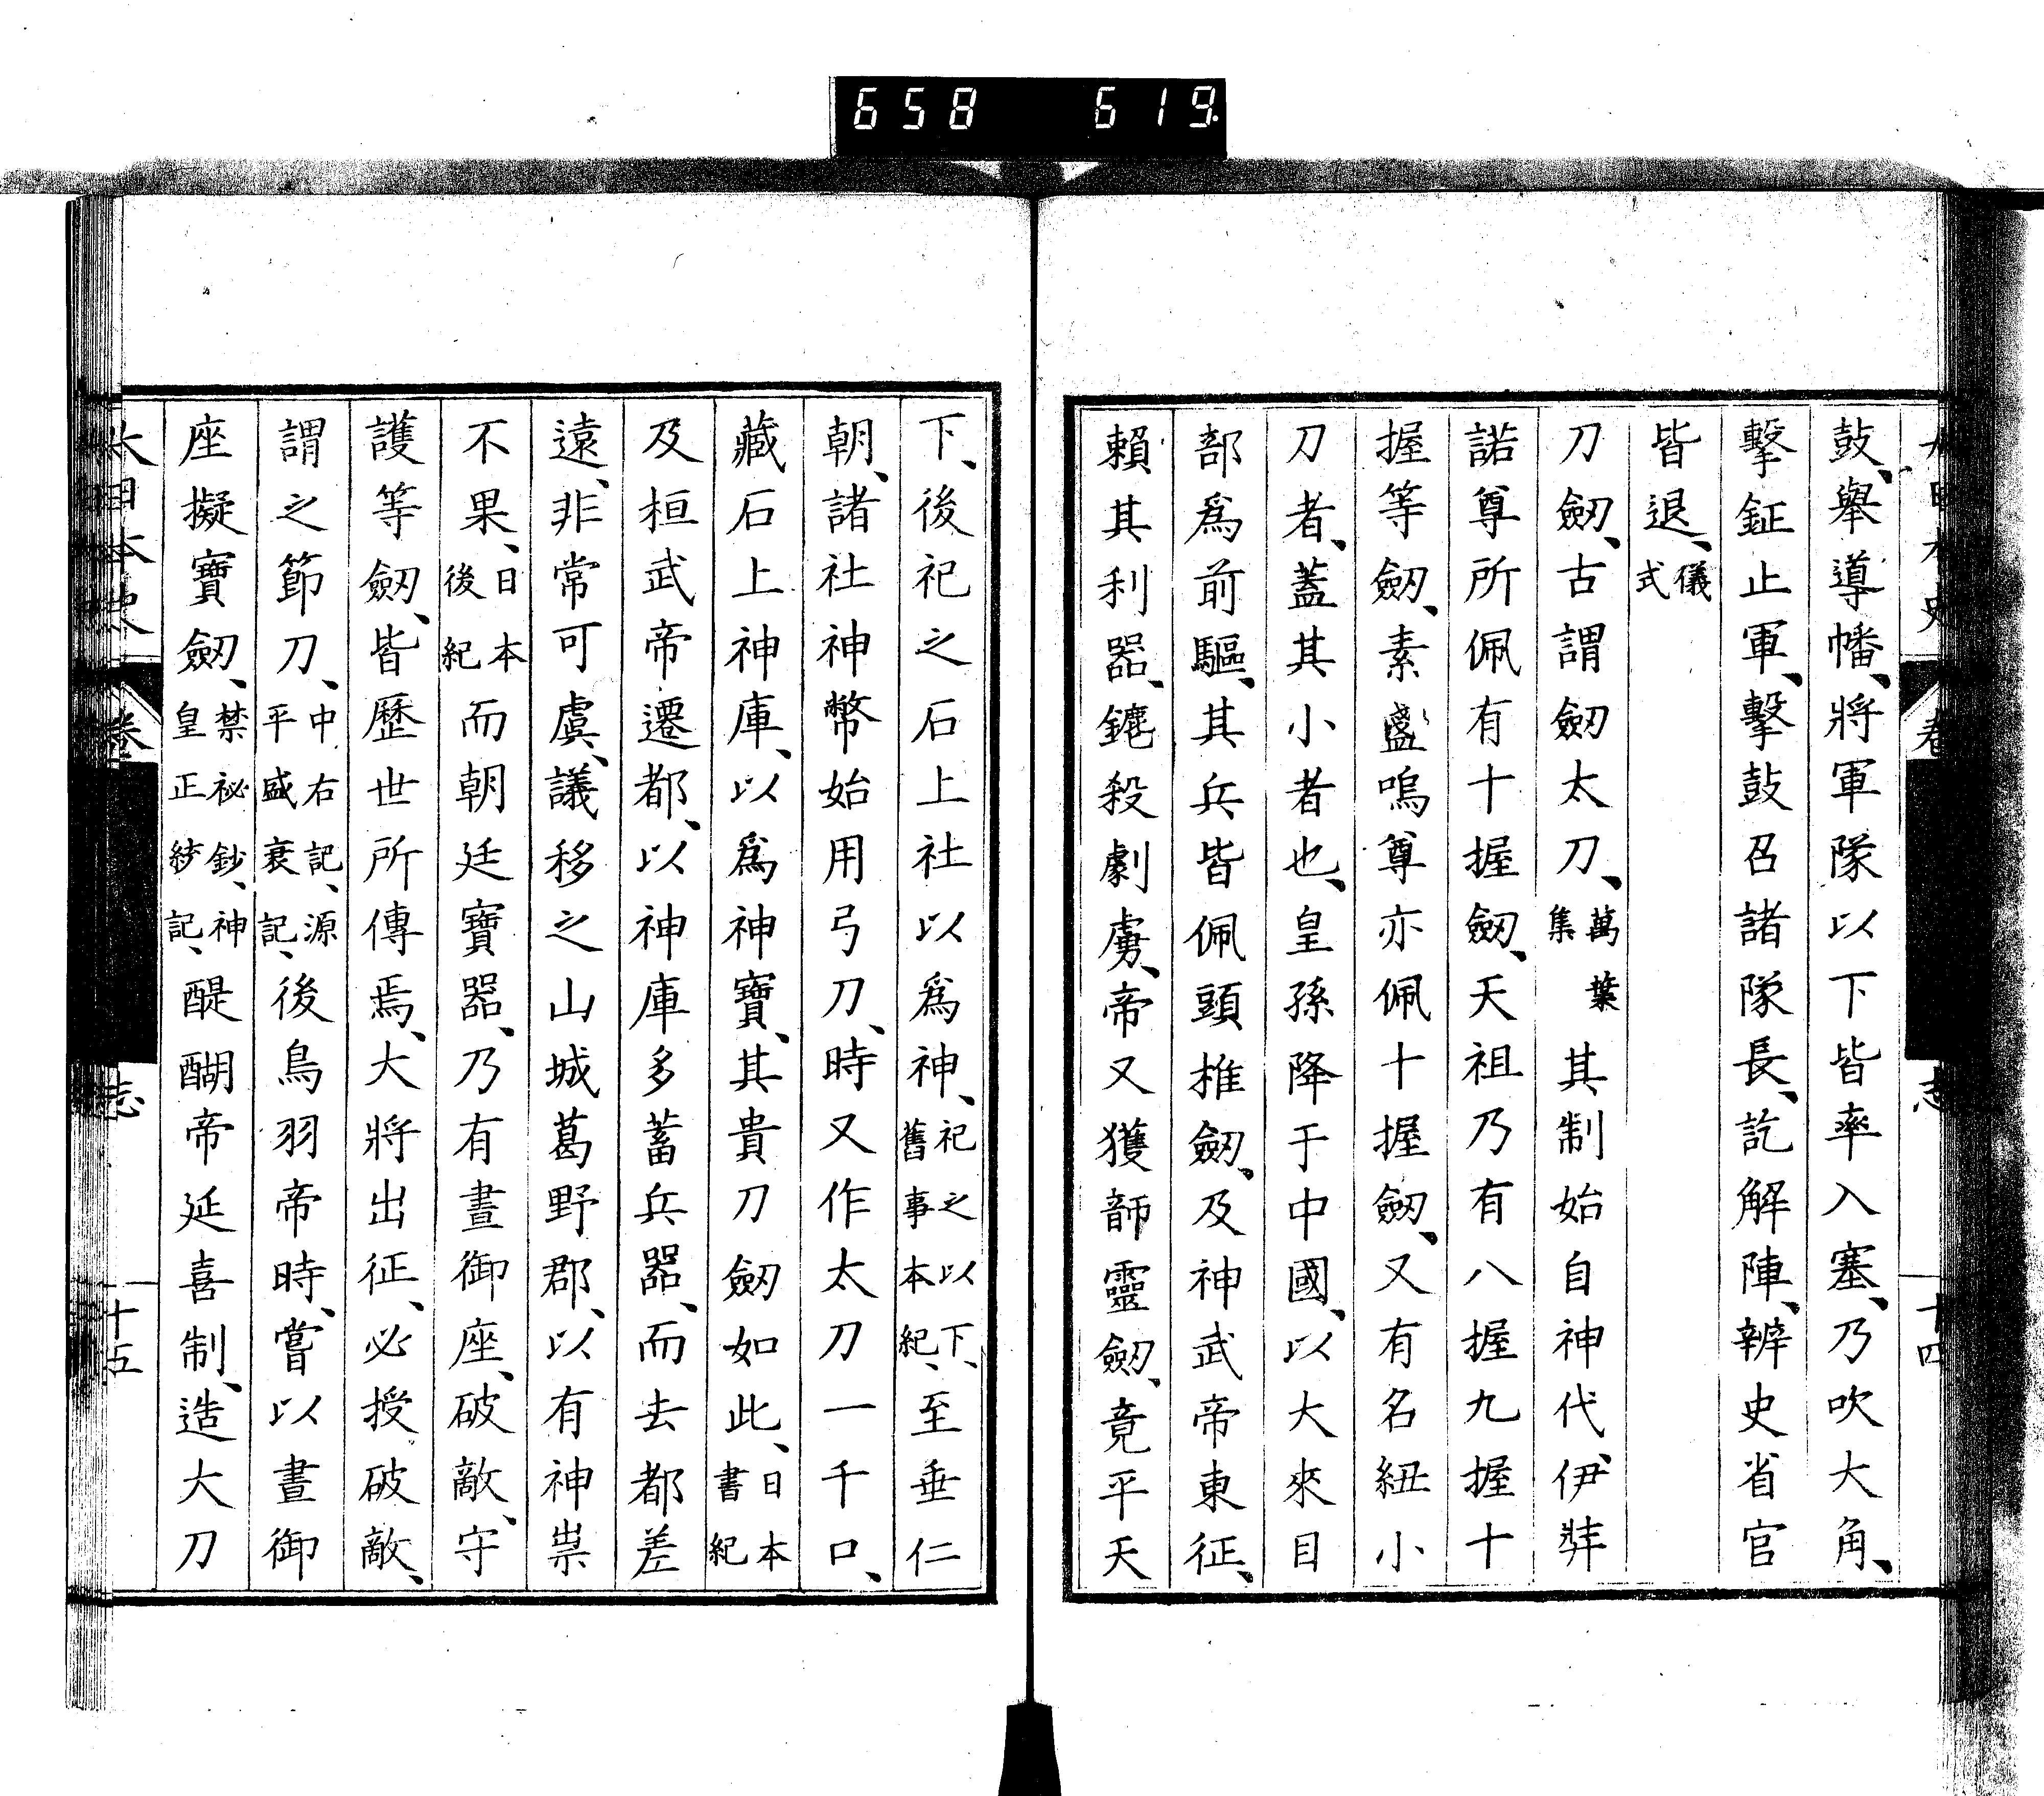 658 619
大日本史 卷 志 十四
鼓、舉導幡、將軍隊以下皆率入塞、乃吹大角、
擊鉦止軍、擊鼓召諸隊長、訖解陣、辨史省官
皆退、儀式
刀劒、古謂劒太刀、萬葉集其制始自神代、伊弉
諾尊所佩有十握劒、天祖乃有八握九握十
握等劒、素盞嗚尊亦佩十握劒、又有名紐小
刀者、蓋其小者也、皇孫降于中國、以大來目
部爲前驅、其兵皆佩頭椎劒、及神武帝東征、
賴其利器、鏖殺劇虜、帝又獲韴靈劒、竟平天
下、後祀之石上社以爲神、祀之以下、舊事本紀、至垂仁
朝、諸社神幣始用弓刀、時又作太刀一千口、
藏石上神庫、以爲神寶、其貴刀劒如此、日本書紀
及桓武帝遷都、以神庫多蓄兵器、而去都差
遠、非常可虞、議移之山城葛野郡、以有神祟
不果、日本後紀而朝廷寶器、乃有晝御座、破敵、守
護等劒、皆歷世所傳焉、大將出征、必授破敵、
謂之節刀、中右記、源平盛衰記、後鳥羽帝時、嘗以晝御
座擬寶劒、禁祕鈔、神皇正統記、醍醐帝延喜制、造大刀
大日本史 卷 志 十五